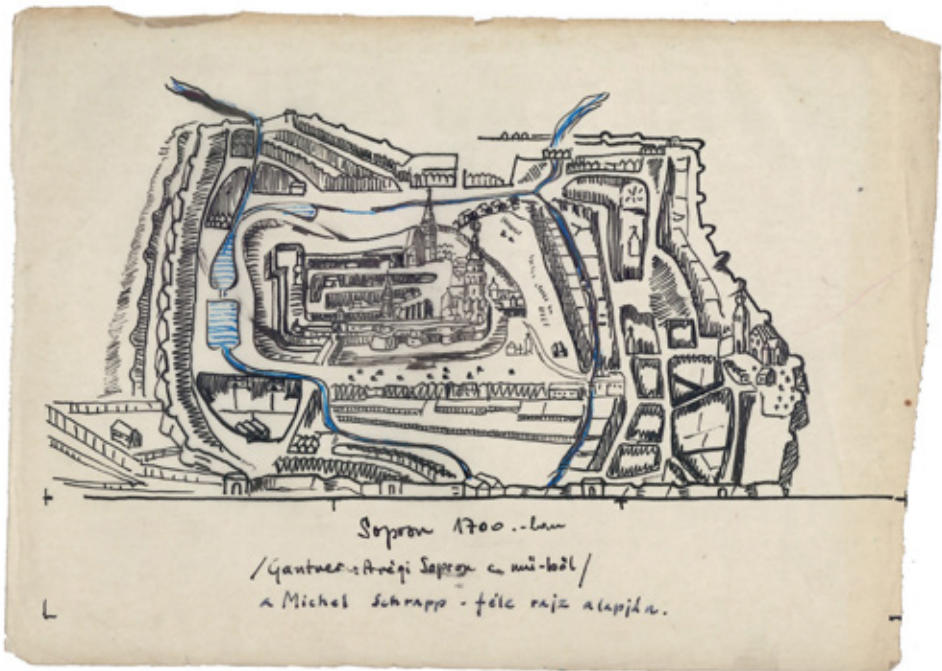 Sopron 1700.-ban
/Gantner: A régi Sopron c. mű-ből/
a Michel Schrapp - féle rajz alapján.